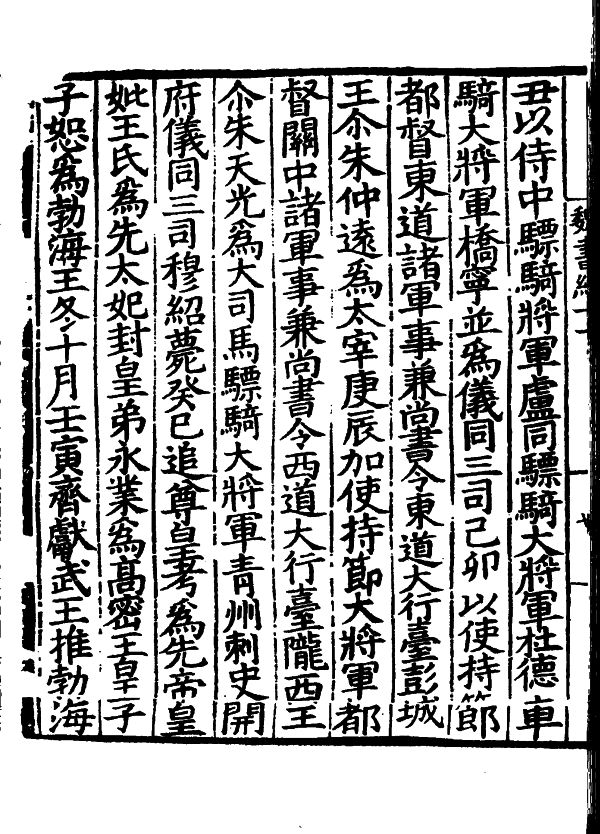 魏書紀十一
丑以侍中驃騎將軍盧同驃騎大將軍杜德車
騎大將軍橋寧並爲儀同三司己卯以使持節
都督東道諸軍事兼尚書令東道大行臺彭城
王尒朱仲遠爲太宰庚辰加使持節大將軍都
督關中諸軍事兼尚書令西道大行臺隴西王
尒朱天光爲大司馬驃騎大將軍青州刺史開
府儀同三司穆紹薨癸巳追尊皇考爲先帝皇
妣王氏爲先太妃封皇弟永業爲高密王皇子
子恕爲勃海王冬十月壬寅齊獻武王推勃海